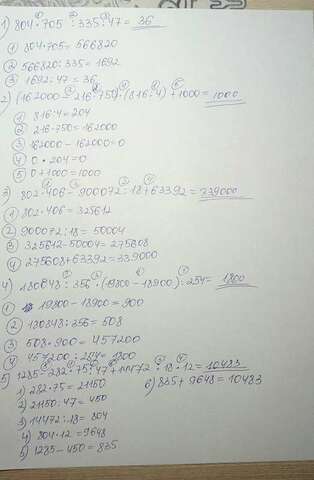 1) 804·705 : 335 : 47 = 36
① 804·705 = 566820
② 566820 : 335 = 1692
③ 1692 : 47 = 36
2) (162000 - 216·750) · (816 : 4) + 1000 = 1000
① 816:4 = 204
② 216·750 = 162000
③ 162000 - 162000 = 0
④ 0 · 204 = 0
⑤ 0 + 1000 = 1000
3) 802·406 - 900072 : 18 + 63392 = 339000
① 802·406 = 325612
② 900072 : 18 = 50004
③ 325612 - 50004 = 275608
④ 275608 + 63392 = 339000
4) 180848 : 356 · (19800 - 18900) : 254 = 1800
① 19800 - 18900 = 900
② 180848 : 356 = 508
③ 508·900 = 457200
④ 457200 : 254 = 1800
5) 1285 - 282·75 : 47 + 14472 : 18 · 12 = 10483
1) 282·75 = 21150
6) 835 + 9648 = 10483
2) 21150 : 47 = 450
3) 14472 : 18 = 804
4) 804·12 = 9648
5) 1285 - 450 = 835